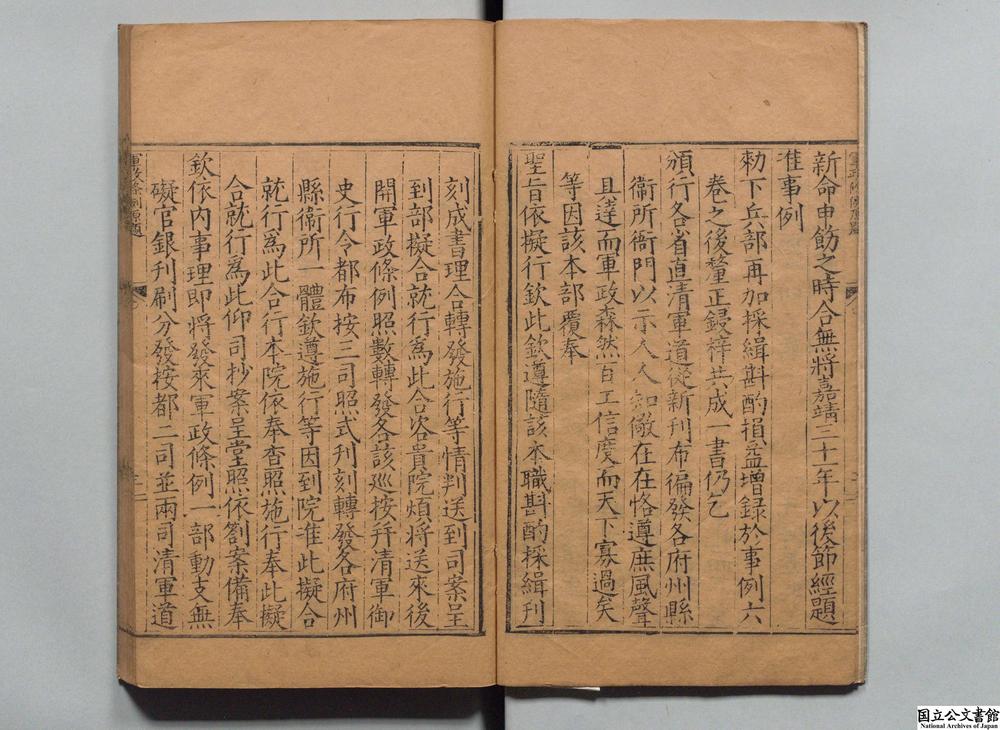 新命申飭之時合無將嘉靖三十年以後節經題
准事例
勅下兵部再加採緝斟酌損益增録於事例六
卷之後釐正鋟梓共成一書仍乞
頒行各省直清軍道從新刊布徧發各府州縣
衞所衙門以示人人知儆在在恪遵庶風聲
且達而軍政森然百工信度而天下寡過矣
等因該本部覆奉
聖旨依擬行欽此欽遵隨該本職斟酌採緝刊
刻成書理合轉發施行等情判送到司案呈
到部擬合就行爲此合咨貴院煩將送來後
開軍政條例照數轉發各該巡按幷清軍御
史行令都布按三司照式刊刻轉發各府州
縣衞所一體欽遵施行等因到院准此擬合
就行爲此合行本院依奉查照施行奉此擬
合就行爲此仰司抄案呈堂照依劄案備奉
欽依内事理即將發來軍政條例一部動支無
礙官銀刊刷分發按都二司並兩司清軍道
軍政條例原題
国立公文書館
National Archives of Japan